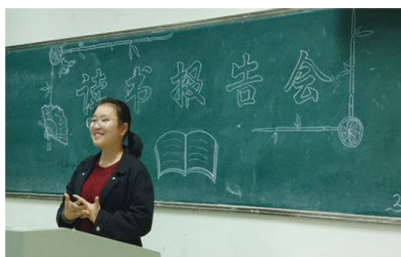 读书报告会